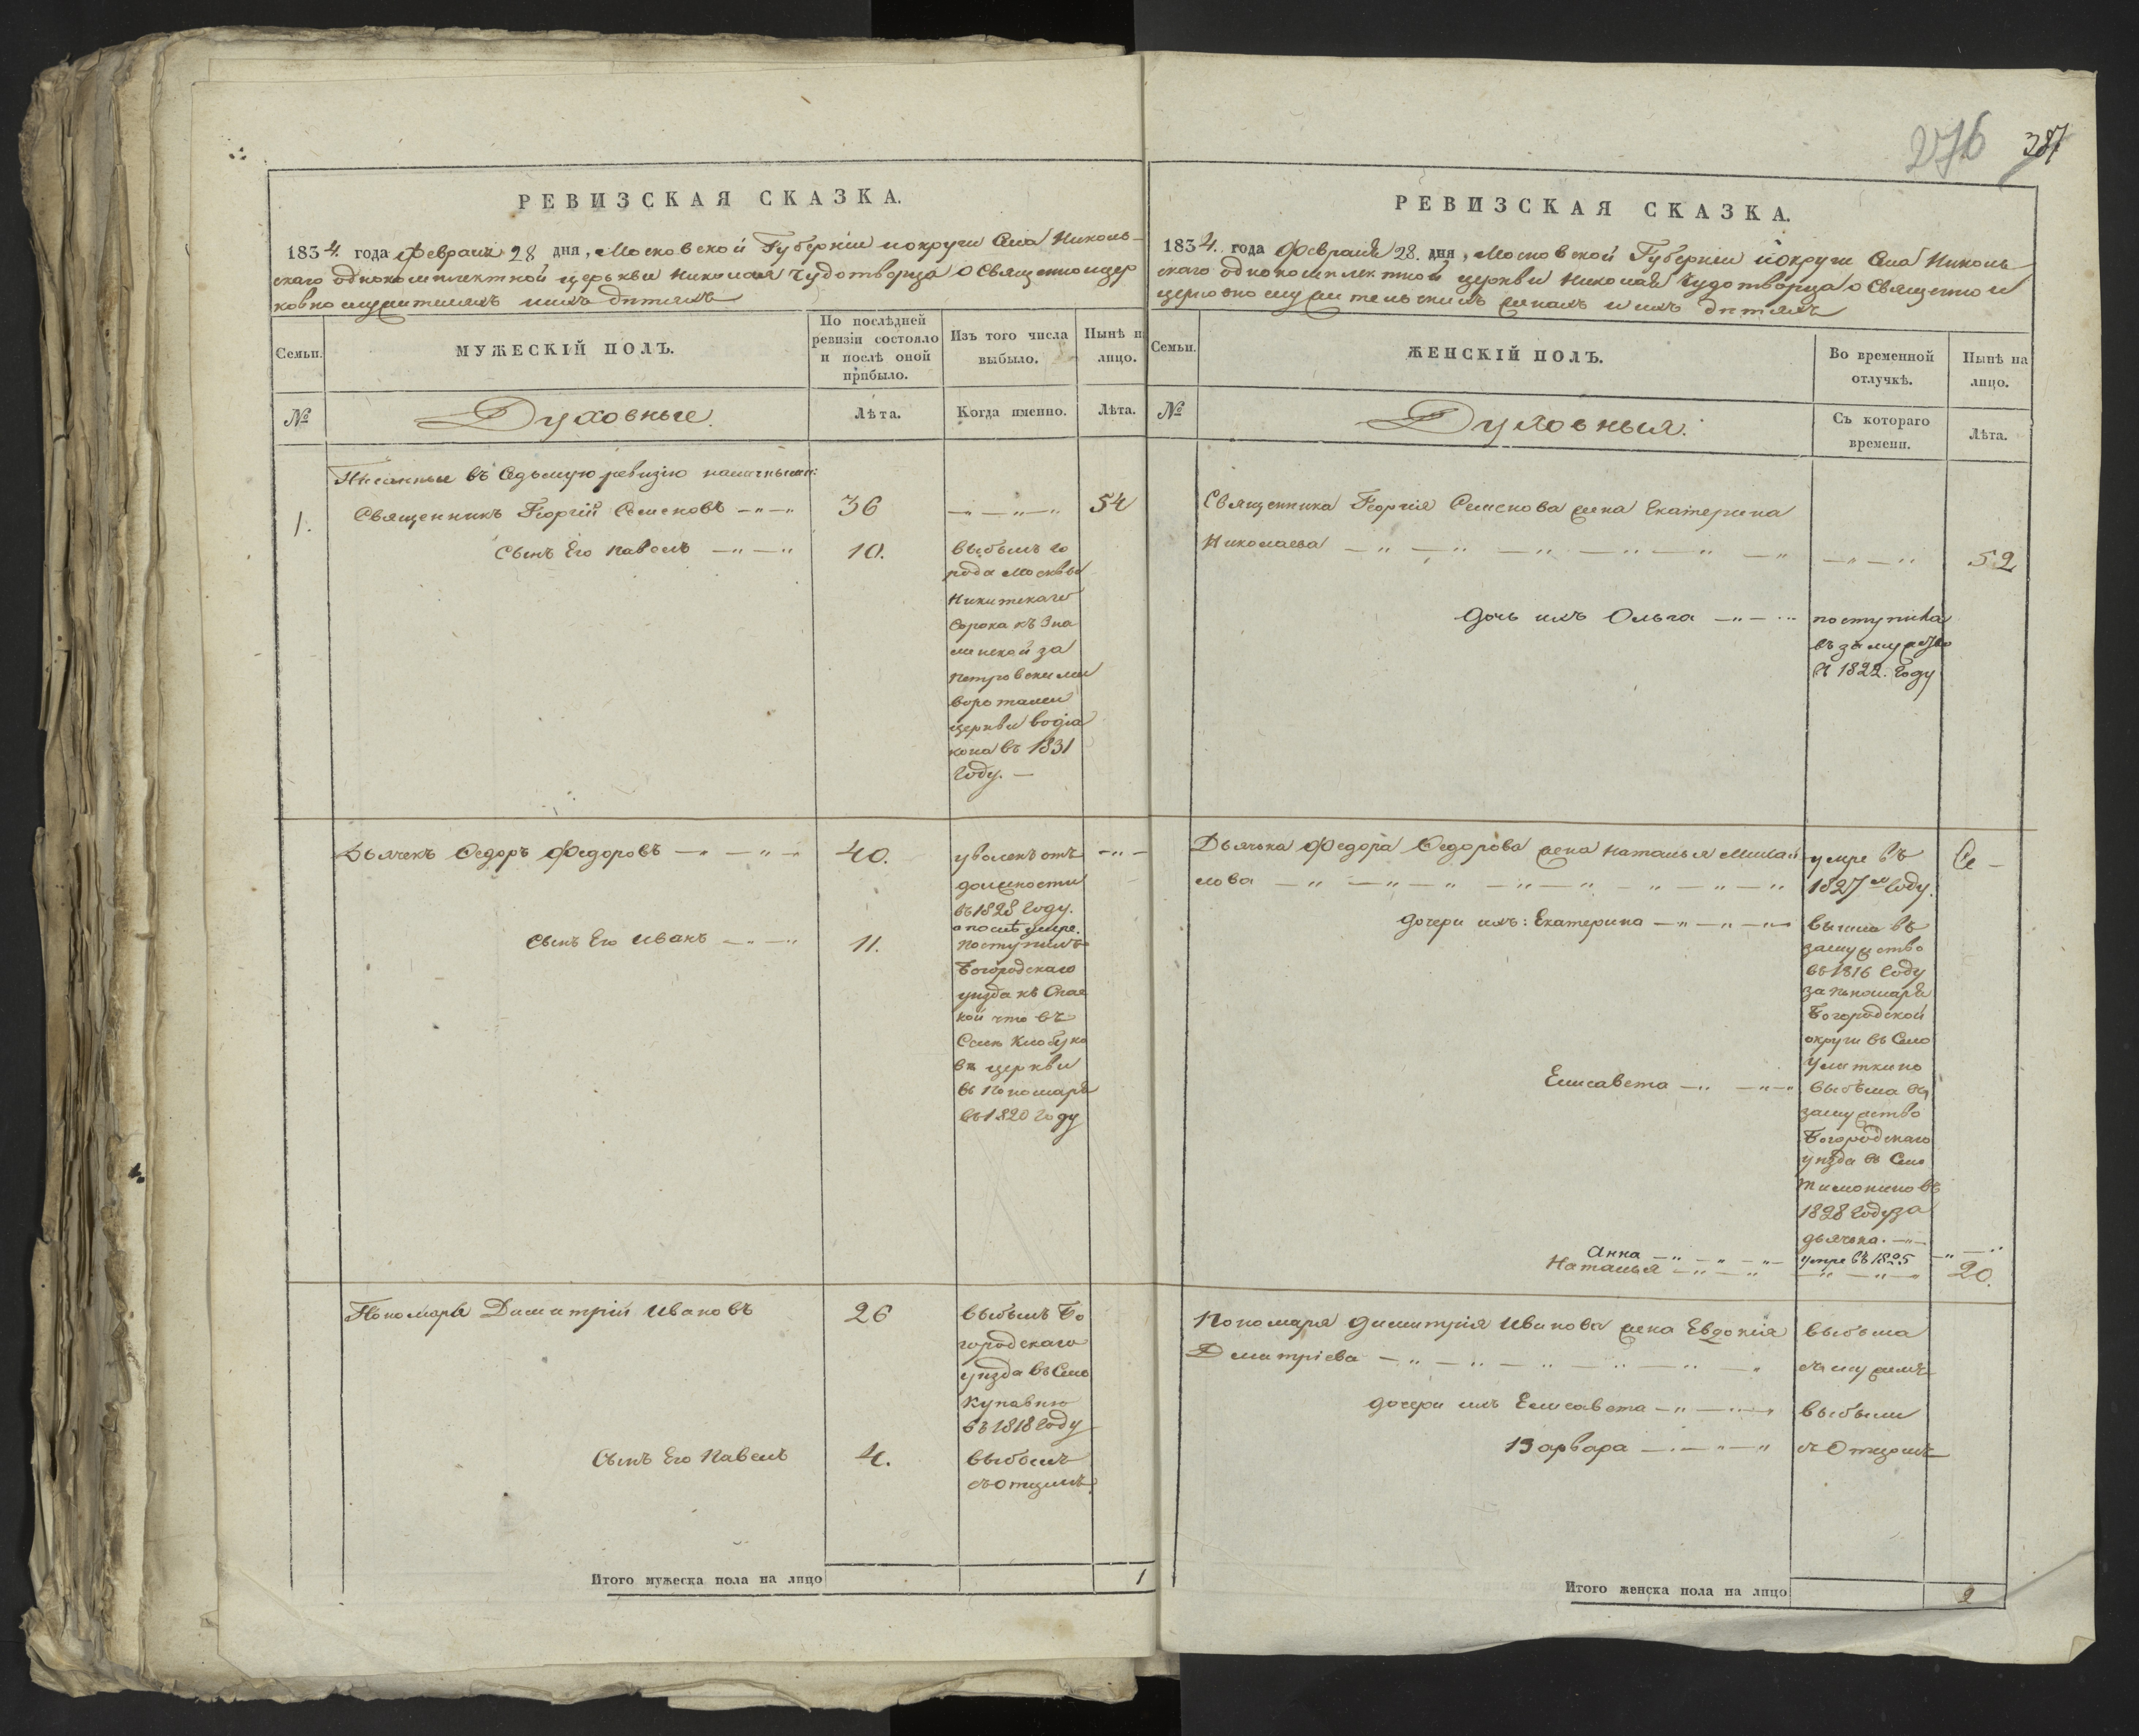 276 387
РЕВИЗСКАЯ СКАЗКА.
1834. года Февраля 28 дня, Московской Губерніи и округи Села Николь-
скаго однокомплектной церькви Николая Чудотворца о Священноицер
ковнослужителяхъ ихъ дѣтяхъ
Семьи.
МУЖЕСКІЙ ПОЛЪ.
По послѣдней
ревизіи состояло
и послѣ оной
прибыло.
Изъ того числа
выбыло.
Нынѣ на
лицо.
№
Духовные.
Лѣта.
Когда именно.
Лѣта.
Писанные въ Седьмую ревизію наличными:
1. Священникъ Георгій Семеновъ 36 54
Сынъ Его Павелъ 10. выбылъ го
рода Москвы
Никитскаго
Сорока къ Зна
менской за
Петровскими
воротами
церкви водіа
кона въ 1831
Году.
Дьячекъ Ѳедоръ Федоровъ 40. уволенъ отъ
должности
въ 1828 Году.
а послѣ умре.
Сынъ Его Иванъ 11. поступилъ
Богородскаго
уѣзда къ Спас
кой что въ
Селѣ Клобуко
вѣ церкви
въ Пономаря
въ 1820 Году
Пономарь Димитрій Ивановъ 26 выбылъ Бо
городскаго
уѣзда въ Село
Купавно
въ 1818 Году
Сынъ Его Павелъ 4. выбылъ
съ Отцемъ.
Итого мужеска пола на лицо 1
РЕВИЗСКАЯ СКАЗКА.
1834. года Февраля 28. дня, Московской Губерніи и округи Села Николь
скаго однокомплектной церкви Николая Чудотворца о Священно и
церковнослужительскихъ женахъ и ихъ дѣтяхъ
Семьи.
ЖЕНСКІЙ ПОЛЪ.
Во временной
отлучкѣ.
Нынѣ на
лицо.
№
Духовныя.
Съ котораго
времени.
Лѣта.
Священника Георгія Семенова жена Екатерина
Николаева 52
Дочь ихъ Ольга поступила
въ замужство
въ 1822. Году
Дьячка Федора Ѳедорова жена Наталья Михай умре въ
лова 1827 м Году.
Дочери ихъ: Екатерина вышла въ
замужство
въ 1816 Году
за пономаря
Богородской
округи въ Село
Улиткино
Елисавета выбыла въ
замужство
Богородскаго
уѣзда въ Село
Тимонино въ
1828 Году за
дьячка.
Анна умре въ 1825
Наталья 20.
Пономаря Димитрія Иванова жена Евдокія выбыла
Дмитріева съ мужемъ
Дочери ихъ Елисавета выбыли
Варвара съ Отцомъ
Итого женска пола на лицо 2